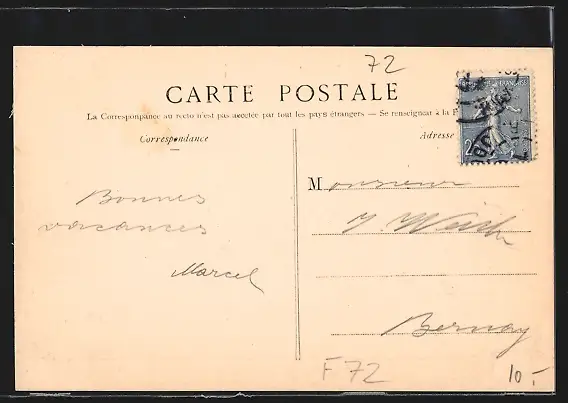 72
CARTE POSTALE
La Correspondance au recto n'est pas acceptée par tout les pays étrangers — Se renseigner à la P
Correspondance
Adresse
Bonnes
vacances
Marcel
Monsieur
Bernay
F72
10.-